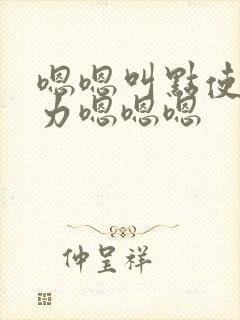 嗯嗯叫點使
力嗯嗯嗯
仲呈祥